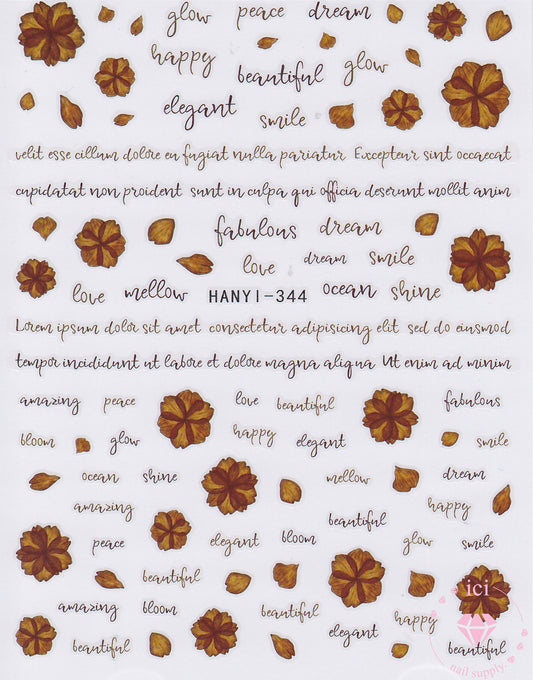 glow peace dream
happy beautiful glow
elegant smile
velit esse cillum dolore eu fugiat nulla pariatur Excepteur sint occaecat
cupidatat non proident sunt in culpa qui officia deserunt mollit anim
fabulous dream
love dream smile
love mellow HANYI-344 ocean shine
Lorem ipsum dolor sit amet consectetur adipisicing elit sed do eiusmod
tempor incididunt ut labore et dolore magna aliqua Ut enim ad minim
amazing peace love beautiful fabulous
bloom glow happy elegant smile
ocean shine mellow dream
amazing beautiful happy
peace elegant bloom glow smile
beautiful
ici
amazing bloom beautiful happy
elegant
beautiful beautiful beautiful
nail supply.